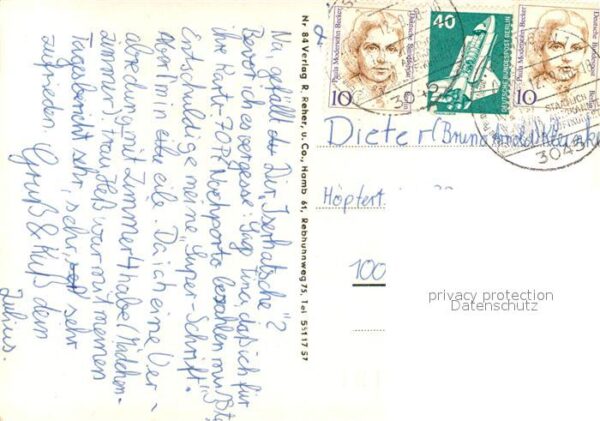 Na, gefällt Dir "
Bevor ich es vergesse: Sag Tina, daß ich für
ihre Karte 70 Pf Nachporto bezahlen mußte.
Entschuldige meine "Super-Schrift".
Aber ich bin in eile. Da ich eine Ver-
abredung mit Zimmer 4 habe (Mädchen-
zimmer). Frau Heß war mit meinem
Tagesbericht sehr, sehr, sehr
zufrieden. Gruß & Kuß dein
Julius.
Nr. 84 Verlag R. Reher, u. Co., Hamb 61, Rebhuhnweg 75, Tel 551 17 57
Paula Modersohn-Becker
10
40
DEUTSCHE BUNDESPOST BERLIN
Paula Modersohn-Becker
Deutsche Bundespost
10
STAATLICH
304
Dieter (Bruno Arnold)
Höpfert
100
privacy protection
Datenschutz